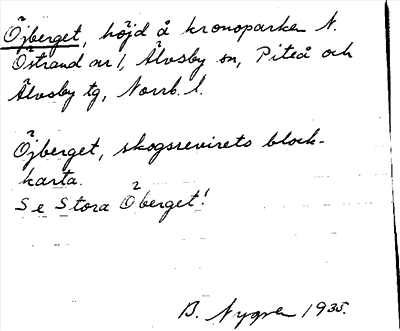 Öjberget, höjd å kronoparken N.
Östrand nr 1, Älvsby sn, Piteå och
Älvsby tg, Norrb. l.
Öjberget, skogsrevirets block-
karta.
Se Stora Öberget!
B. Nygren 1935.